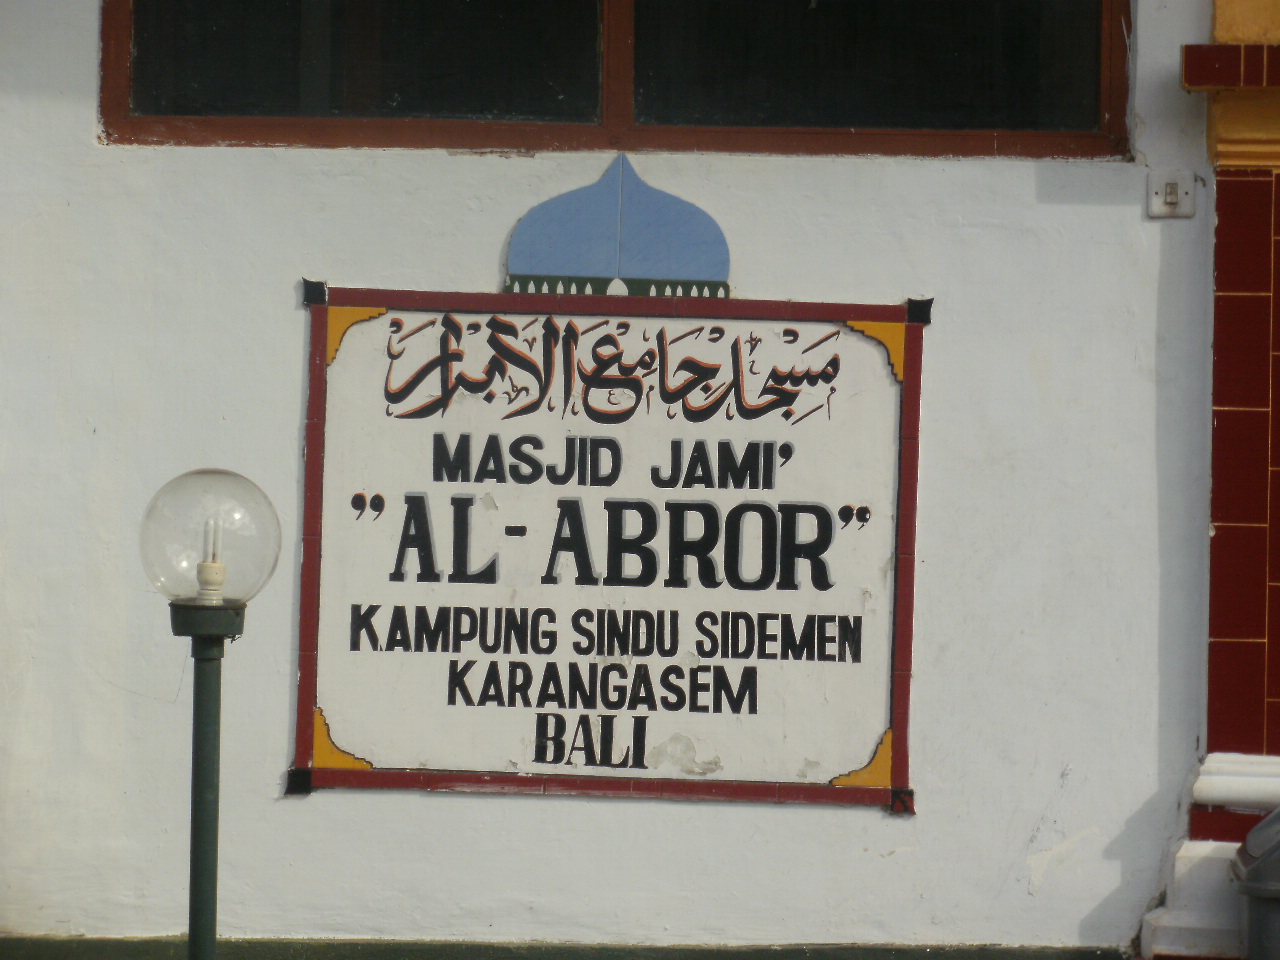 مسجد جامع الابرار
MASJID JAMI'
"AL-ABROR"
KAMPUNG SINDU SIDEMEN
KARANGASEM
BALI